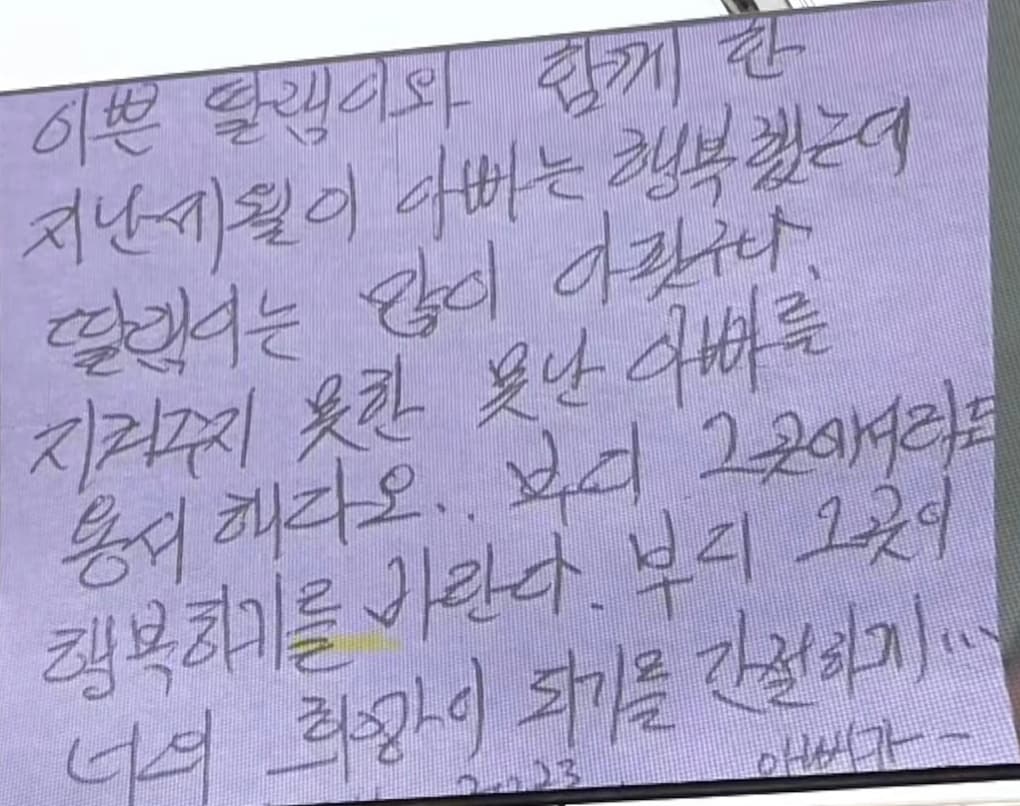 이쁜 딸램이와 함께 한
지난세월이 아빠는 행복했는데
딸램이는 많이 아팟구나.
지켜주지 못한 못난 아빠를
용서해다오.. 부디 그곳에서라도
행복하기를 바란다. 부디 그곳이
너의 희망이 되기를 간절하게...
23 아빠가 -